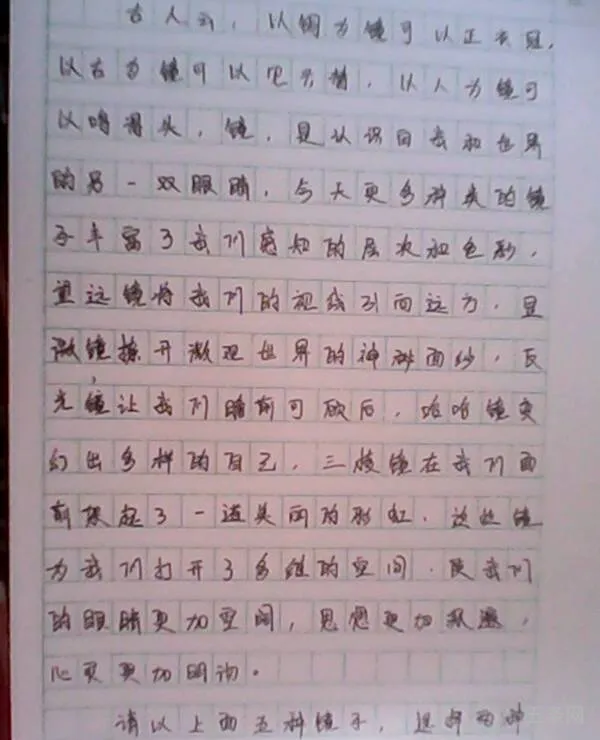 古人云，以铜为镜可以正衣冠，
以古为镜可以见兴替，以人为镜可
以明得失，镜，是认识自我和世界
的另一双眼睛，今天更多种类的镜
子丰富了我们感知的层次和色彩，
望远镜将我们的视线引向远方，显
微镜撩开微观世界的神秘面纱，反
光镜让我们瞻前可顾后，哈哈镜变
幻出多样的自己，三棱镜在我们面
前架起了一道美丽的彩虹，这些镜
为我们打开了多维的空间，使我们
的眼睛更加空阔，思想更加飘逸，
心灵更加明朗。
请以上面五种镜子，选择两种